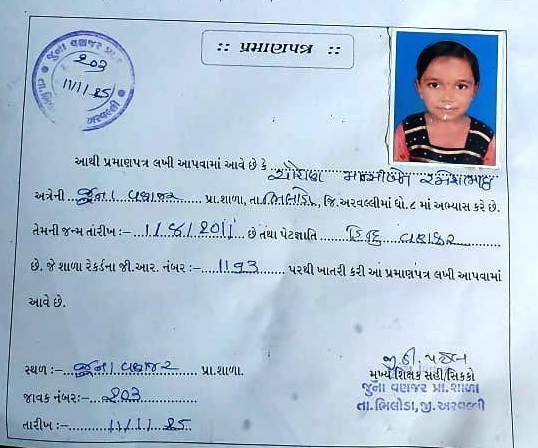 જુના વણજર પ્રા.
203
11/1/25
તા.ભિ અરવલ્લી
:: પ્રમાણપત્ર ::
આથી પ્રમાણપત્ર લખી આપવામાં આવે છે કે
અત્રેની જુના વણજર પ્રા.શાળા, તા. ભિલોડા, જિ.અરવલ્લીમાં ધો.૮ માં અભ્યાસ કરે છે.
તેમની જન્મ તારીખ :- 2011 છે તથા પેટાજ્ઞાતિ હિંદુ વણકર
છે. જે શાળા રેકર્ડના જી.આર. નંબર :- 1193 પરથી ખાતરી કરી આ પ્રમાણપત્ર લખી આપવામાં
આવે છે.
સ્થળ :- જુના વણજર પ્રા.શાળા.
મુખ્ય શિક્ષક સહી/સિક્કો
જુના વણજર પ્રા.શાળા
જાવક નંબર:- 203
તા.ભિલોડા, જી.અરવલ્લી
તારીખ :- 11/1/25